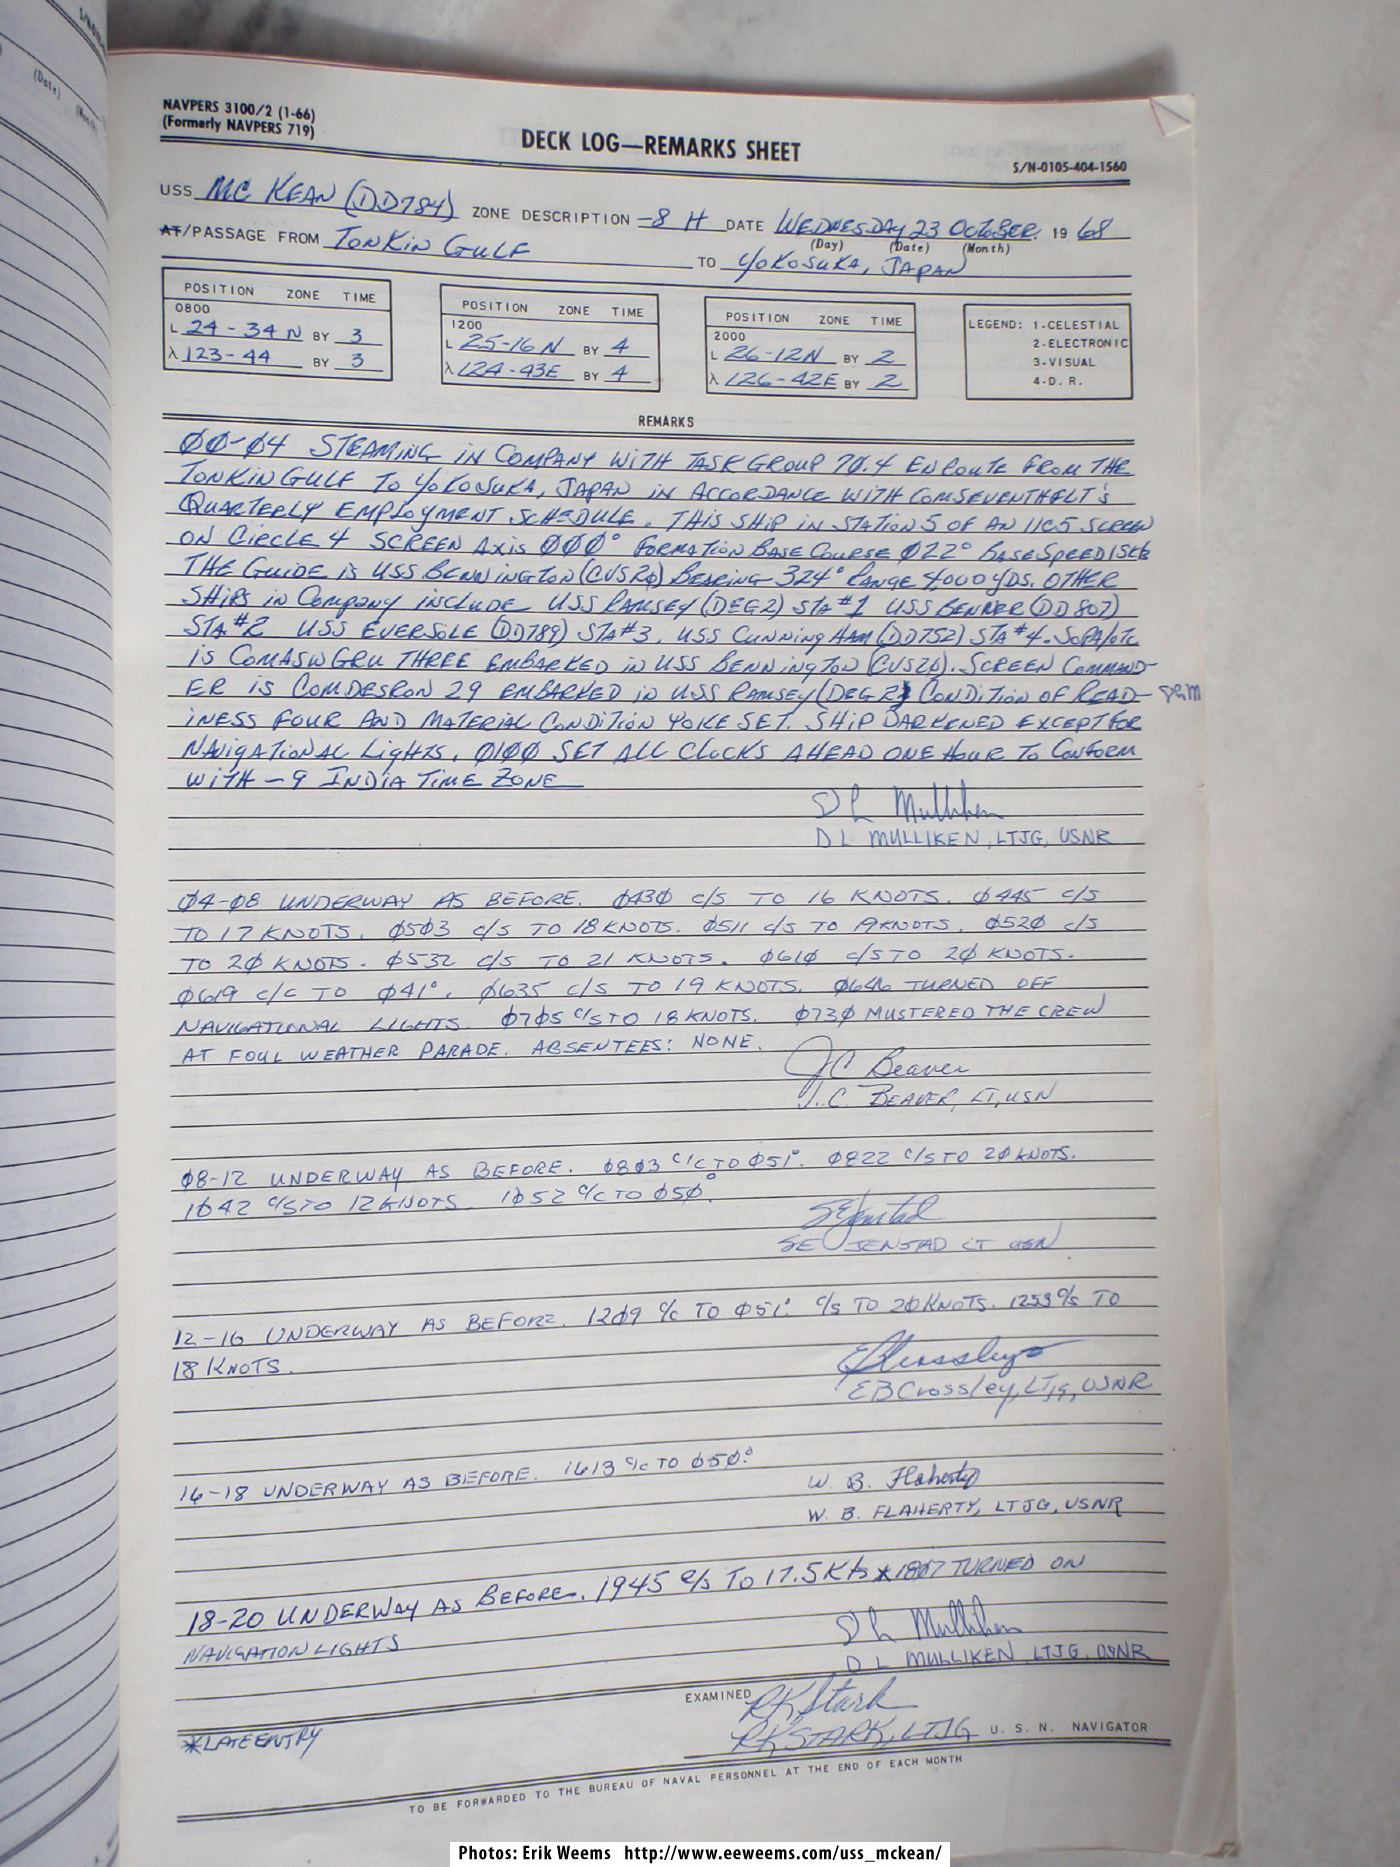 (Date)
NAVPERS 3100/2 (1-66)
(Formerly NAVPERS 719)
DECK LOG—REMARKS SHEET
S/N-0105-404-1560
USS MC KEAN (DD784) ZONE DESCRIPTION -8 H DATE WEDNESDAY 23 OCTOBER 19 68
(Day) (Date) (Month)
AT/PASSAGE FROM TONKIN GULF TO YOKOSUKA, JAPAN
POSITION ZONE TIME
0800
L 24-34 N BY 3
λ 123-44 BY 3
POSITION ZONE TIME
1200
L 25-16 N BY 4
λ 124-43E BY 4
POSITION ZONE TIME
2000
L 26-12N BY 2
λ 126-42E BY 2
LEGEND: 1-CELESTIAL
2-ELECTRONIC
3-VISUAL
4-D. R.
REMARKS
ØØ-Ø4 STEAMING IN COMPANY WITH TASK GROUP 70.4 ENROUTE FROM THE
TONKIN GULF TO YOKOSUKA, JAPAN IN ACCORDANCE WITH COMSEVENTHFLT'S
QUARTERLY EMPLOYMENT SCHEDULE. THIS SHIP IN STATION 5 OF AN SCREEN
ON CIRCLE 4 SCREEN AXIS ØØØ° FORMATION BASE COURSE Ø22° BASE SPEED 15 KTS
THE GUIDE IS USS BENNINGTON (CVS20) BEARING 324° RANGE 4000 YDS. OTHER
SHIPS IN COMPANY INCLUDE USS RAMSEY (DEG2) STA #1 USS BENNER (DD 807)
STA #2 USS EVERSOLE (DD789) STA #3, USS CUNNINGHAM (DD752) STA #4. SOPA/OTC
IS COMASWGRU THREE EMBARKED IN USS BENNINGTON (CVS20). SCREEN COMMAND-
ER IS COMDESRON 29 EMBARKED IN USS RAMSEY (DEG 2) CONDITION OF READ-
INESS FOUR AND MATERIAL CONDITION YOKE SET. SHIP DARKENED EXCEPT FOR
NAVIGATIONAL LIGHTS. Ø1ØØ SET ALL CLOCKS AHEAD ONE HOUR TO CONFORM
WITH -9 INDIA TIME ZONE
D L Mulliken
D L MULLIKEN, LTJG, USNR
Ø4-Ø8 UNDERWAY AS BEFORE. Ø43Ø C/S TO 16 KNOTS. Ø445 C/S
TO 17 KNOTS. Ø5Ø3 C/S TO 18 KNOTS. Ø511 C/S TO 19 KNOTS. Ø52Ø C/S
TO 2Ø KNOTS. Ø532 C/S TO 21 KNOTS. Ø61Ø C/S TO 2Ø KNOTS.
Ø619 C/C TO Ø41°. Ø635 C/S TO 19 KNOTS. Ø646 TURNED OFF
NAVIGATIONAL LIGHTS. Ø7Ø5 C/S TO 18 KNOTS. Ø73Ø MUSTERED THE CREW
AT FOUL WEATHER PARADE. ABSENTEES: NONE.
JC Beaver
J. C. BEAVER, LT, USN
Ø8-12 UNDERWAY AS BEFORE. Ø8Ø3 C/C TO Ø51°. Ø822 C/S TO 2Ø KNOTS.
1Ø42 C/S TO 12 KNOTS. 1Ø52 C/C TO Ø5Ø°.
SE Jenstad
SE JENSTAD LT USN
12-16 UNDERWAY AS BEFORE. 12Ø9 C/C TO Ø51°. C/S TO 2Ø KNOTS. 1253 C/S TO
18 KNOTS.
EB Crossley
EB Crossley, LTjg, USNR
16-18 UNDERWAY AS BEFORE. 1613 C/C TO Ø5Ø°.
W. B. Flaherty
W. B. FLAHERTY, LTJG, USNR
18-20 UNDERWAY AS BEFORE. 1945 C/S TO 17.5 Kts *18Ø7 TURNED ON
NAVIGATION LIGHTS
D L Mulliken
D L MULLIKEN, LTJG, USNR
EXAMINED
RK Stark
RK STARK, LTJG U. S. N. NAVIGATOR
*LATE ENTRY
TO BE FORWARDED TO THE BUREAU OF NAVAL PERSONNEL AT THE END OF EACH MONTH
Photos: Erik Weems http://www.eeweems.com/uss_mckean/